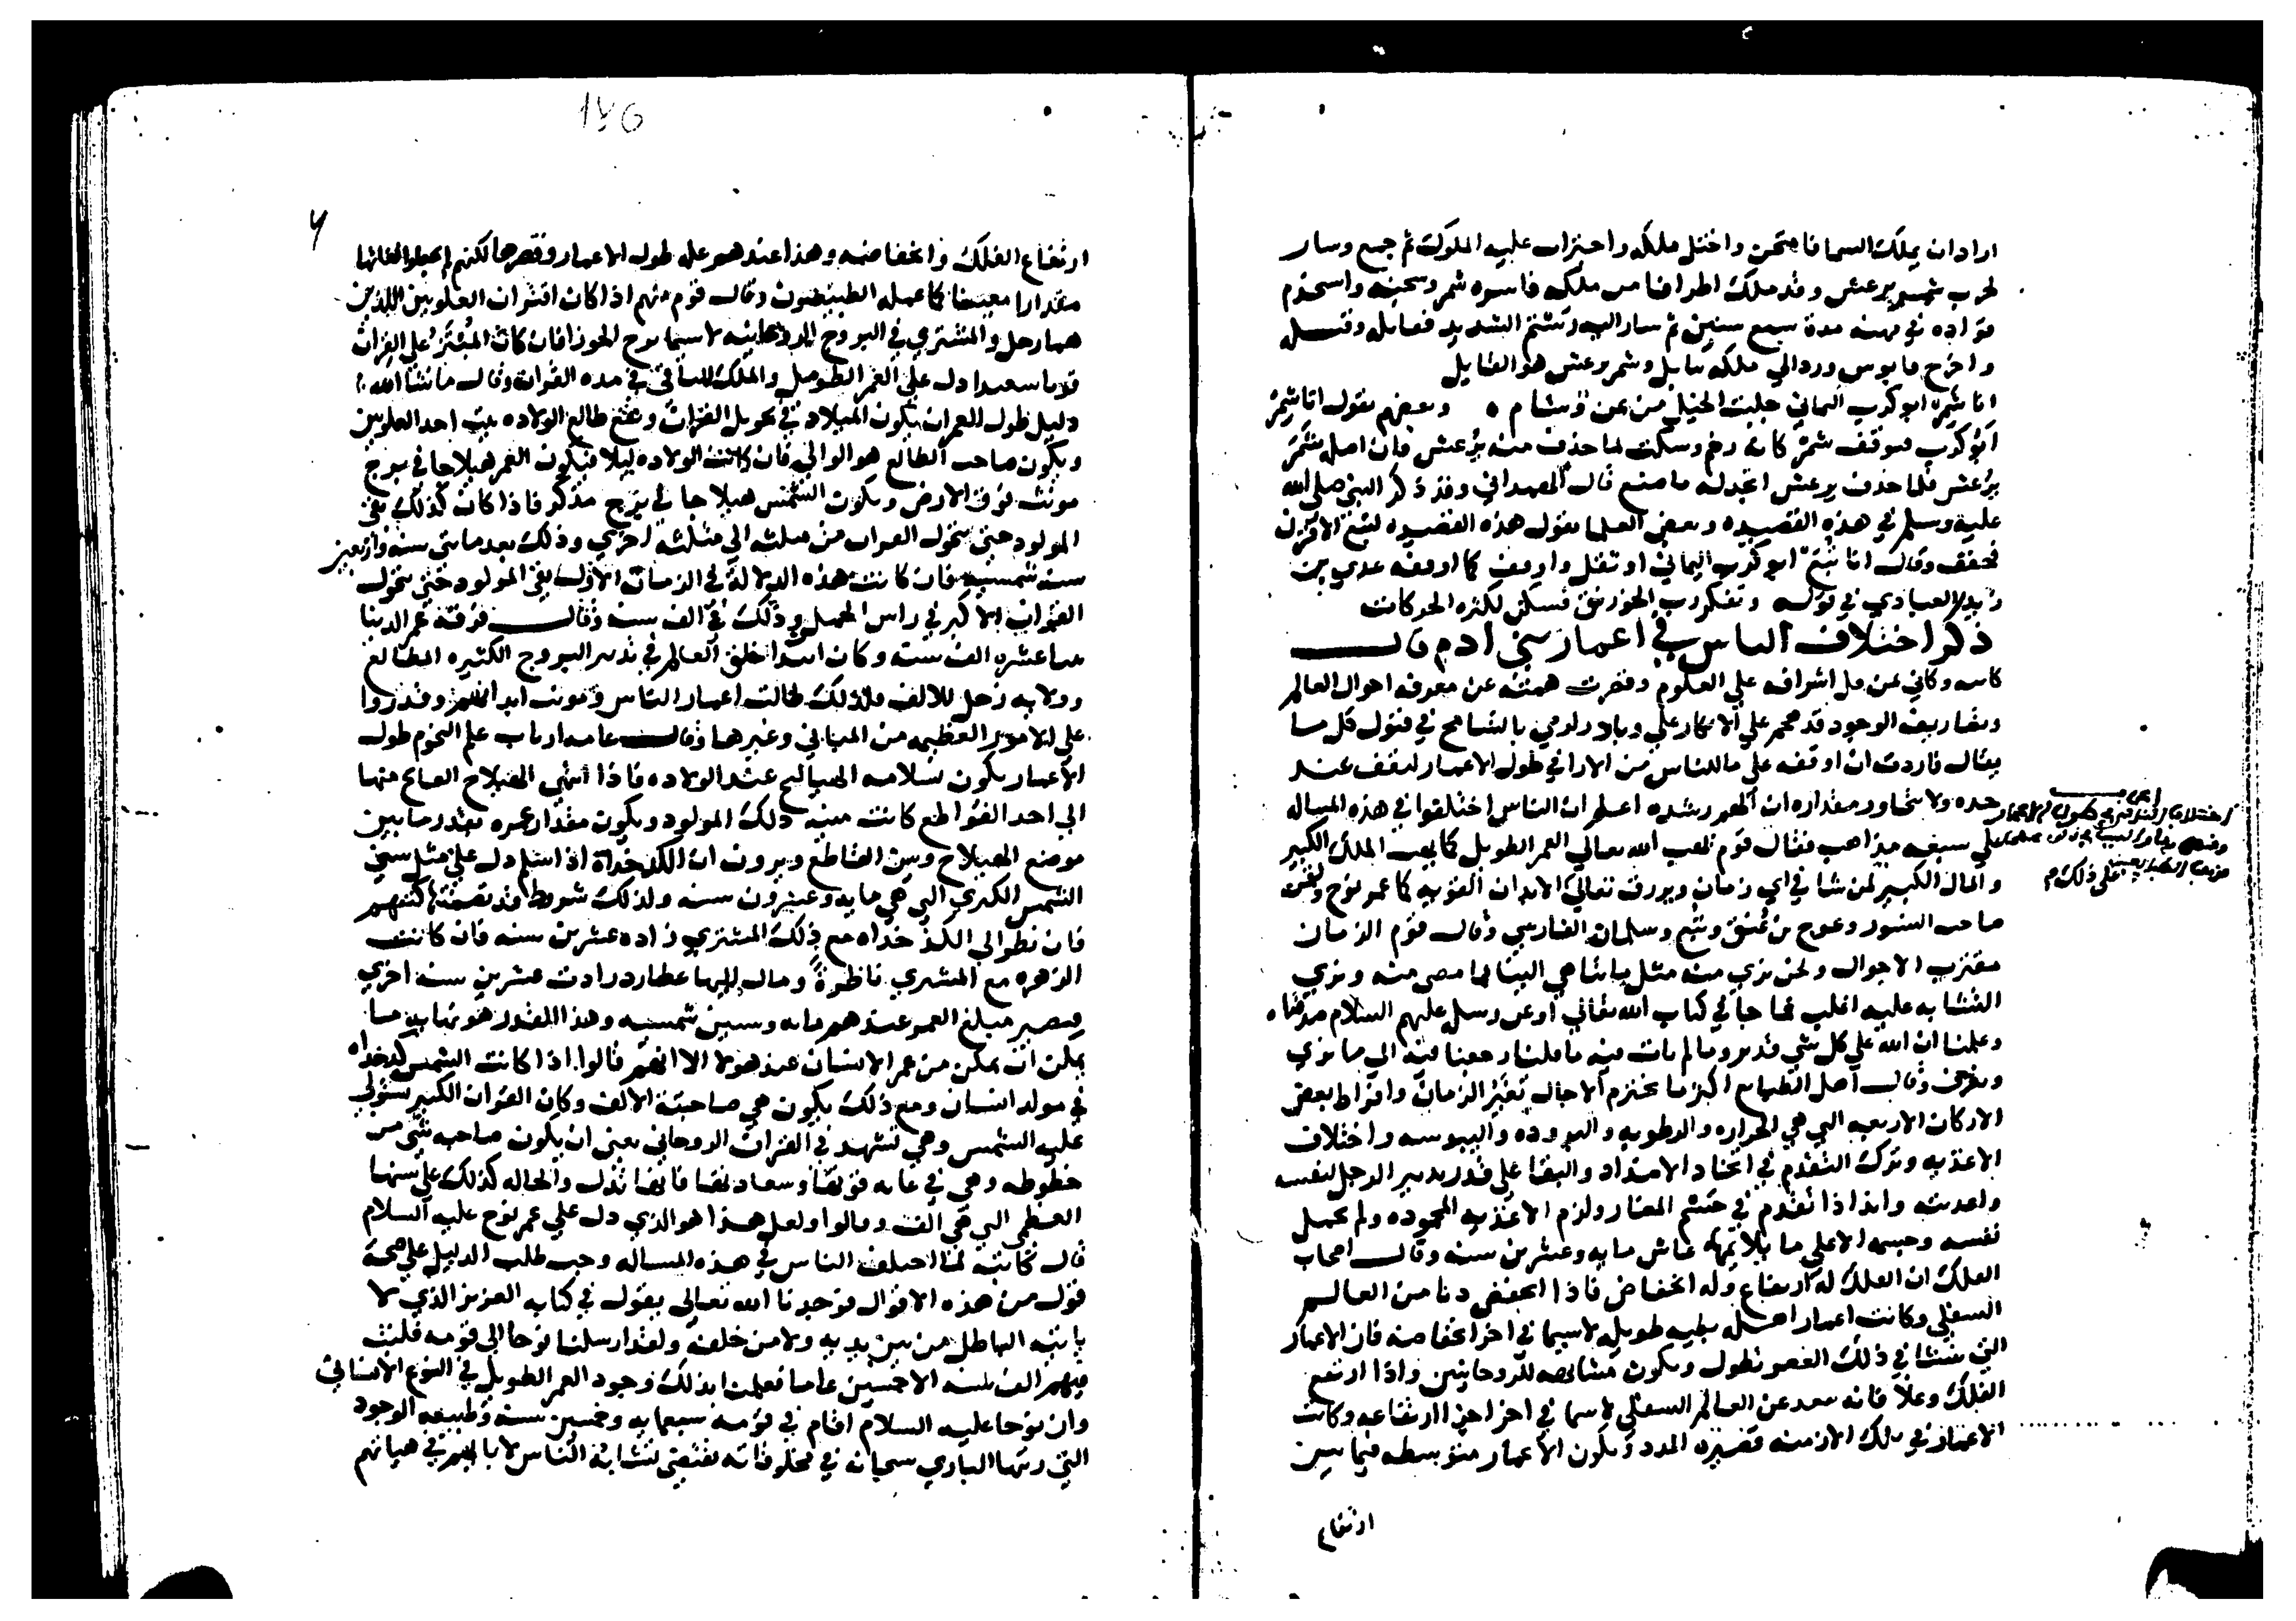 اراد ان يملك السما فامتحن واختل ملكه واحتراب عليه الملوك ثم جمع وسار
لحرب شمر يرعش وقد ملك اطرافا من ملكه فاسره شمر وسجنه واستخدم
قواده في مهنه مدة سبع سنين ثم سار اليه رستم الشديد فقاتل وقتله
واخرج قابوس ورد الي ملكه ببابل وشمر يرعش هو القايل
انا شمر ابو كرب اليماني جلبت الخيل من يمن وشام ٥ وبعضهم يقول انا شمر
ابو كرب فيوقف شمر كانه رخم وسكت لما حذف منه يرعش فان اصل شمر
يرعش فلما حذف يرعش اتجه له ما صنع قال الهمداني وقد ذكر النبي صلى الله
عليه وسلم في هذه القصيده وبعض العلما يقول هذه القصيده لتبع الاقرن
فخفف وقال انا تبع ابو كرب اليماني او تفل واوقف كما اوقفه عدي بن
زيد العبادي في قوله وتفكر رب الخورنق فسكن لكثره الحركات
ذكر اختلاف الناس في اعمار بني ادم قال
كاتبه وكاني بمن قل اشرافه علي العلوم وقصرت همته عن معرفه احوال العالم
وتصاريف الوجود قد هجم علي الانكار علي وبادر لومي بالتسامح في قبول كل ما
يقال فاردت ان اوقفه علي ما للناس من الارا في طول الاعمار ليقف عند
حده ولا يتجاوز مقداره ان الهم رشده اعلم ان الناس اختلفوا في هذه المساله
علي سبعه مذاهب فقال قوم يهب الله تعالي العمر الطويل كما يهب الملك الكبير
والمال الكبير لمن شا في اي زمان ويرون تتالي الابدان القويه كما عمر نوح ولقمن
صاحب النسور وعوج بن عنق وتبع وسلمان الفارسي وقال قوم الزمان
مقترب الاحوال ونحن نري منه مثل ما تناهي الينا لما مضى منه ونري
التشابه عليه اغلب فما جا في كتاب الله تعالي او عن رسله عليهم السلام صدقناه
وعلمنا ان الله علي كل شي قدير وما لم يات فيه ما قلنا رجعنا فيه الي ما نري
ونعرف وقال اهل الطبايع اكثر ما يخترم الاجال تغير الزمان وافراط بعض
الاركان الاربعه التي هي الحراره والرطوبه والبروده واليبوسه واختلاف
الاغذيه وترك التقدم في اتخاد الامتداد والبقا علي قدر تدبير الرجل لنفسه
واغذيته وانه اذا تقدم في حسم المضار ولزم الاغذيه المحموده ولم يحمل
نفسه وجسمه الاعلي ما يلايمه عاش مايه وعشرين سنه وقال اصحاب
الفلك ان الفلك له ارتفاع وله انخفاض فاذا انخفض دنا من العالم
السفلي وكانت اعمار اهله بطيه طويله لاسيما في اخر انخفاضه فان الاعمار
التي تنشا في ذلك العصر تطول وتكون مشابهه للروحانيين واذا ارتفع
الفلك وعلا فانه بعد عن العالم السفلي لاسيما في اخر اجزا ارتفاعه وكانت
الاعمار في تلك الازمنه قصيره المدد وتكون الاعمار متوسطه فيما بين
ارتفاع
علي ذلك م
ارتفاع الفلك وانخفاضه وهذا عندهم علي طول الاعمار وقصرها لكنهم لم يجعلوا لغاياتها
مقدارا معينا كما عمله الطبيعيون وقال قوم منهم اذا كان اقتران العلويين اللذين
هما زحل والمشتري في البروج الروحانيه لاسيما برج الجوزا فان كان المبتز علي القران
قويا سعيدا دل علي العمر الطويل والملك الباقي في مده القران وقال ما شا الله
دليل طول العمر ان يكون الميلاد في تحويل القران ويقع طالع الولاده بيت احد العلويين
ويكون صاحب الطالع هو الوالي فان كانت الولاده ليلا فيكون القمر هيلاجا في برج
مونث فوق الارض ويكون الشمس هيلاجا في برج مذكر فاذا كان كذلك بقي
المولود حتى يتحول القران من مثلثه الي مثلثه اخري وذلك بعد مايتي سنه واربعين
سنه شمسيه فان كانت هذه الدلاله في الزمان الاول بقي المولود حتى يتحول
القران الاكبر في راس الحمل وذلك في الف سنه وقال فرقه عمر الدنيا
اثنا عشره الف سنه وكان ابتدا خلق العالم في تدبير البروج الكثيره المطالع
وولايه زحل للالف فلذلك طالت اعمار الناس وقويت ابدانهم وقدروا
علي الامور العظيمه من المباني وغيرها وقال عامه ارباب علم النجوم طول
الاعمار يكون بسلامه الهيالج عند الولاده فاذا انتهى الهيلاج الصالح منها
الي احد القواطع كانت منيه ذلك المولود ويكون مقدار عمره بقدر ما بين
موضع الهيلاج وبين القاطع ويرون ان الكدخداه اذا سلم دل علي مثل سني
الشمس الكبري التي هي مايه وعشرون سنه ولذلك شروط قد تضمنتها كتبهم
فان نظر الي الكدخداه مع ذلك المشتري زاده عشرين سنه فان كانت
الزهره مع المشتري ناظرة ومال اليها عطارد زادت عشرين سنه اخري
فيصير مبلغ العمر عندهم مايه وستين شمسيه وهذا القدر هو نهايه ما
يمكن ان يمكن من عمر الانسان عند هولا الا انهم قالوا اذا كانت الشمس كدخداه
في مولد انسان ومع ذلك يكون هي صاحبة الالف وكان القران الكبير يستولي
عليه الشمس وهي تشهد في القران الروحاني يعني ان يكون صاحبه شي من
حظوظه وهي في غايه قوتها وسعادتها فانها تدل والحاله كذلك علي سنيها
العظمى التي هي الف وقالوا ولعل هذا هو الذي دل علي عمر نوح عليه السلام
قال كاتبه لما اختلف الناس في هذه المساله وجب طلب الدليل علي صحة
قول من هذه الاقوال فوجدنا الله تعالي يقول في كتابه العزيز الذي لا
ياتيه الباطل من بين يديه ولا من خلفه ولقد ارسلنا نوحا الي قومه فلبث
فيهم الف سنه الا خمسين عاما فعلمنا بذلك وجود العمر الطويل في النوع الانساني
وان نوحا عليه السلام اقام في قومه سبعمايه وخمسين سنه وطبيعه الوجود
التي رتبها الباري سبحانه في مخلوقاته تقتضي تشابه الناس لابايهم في هياتهم